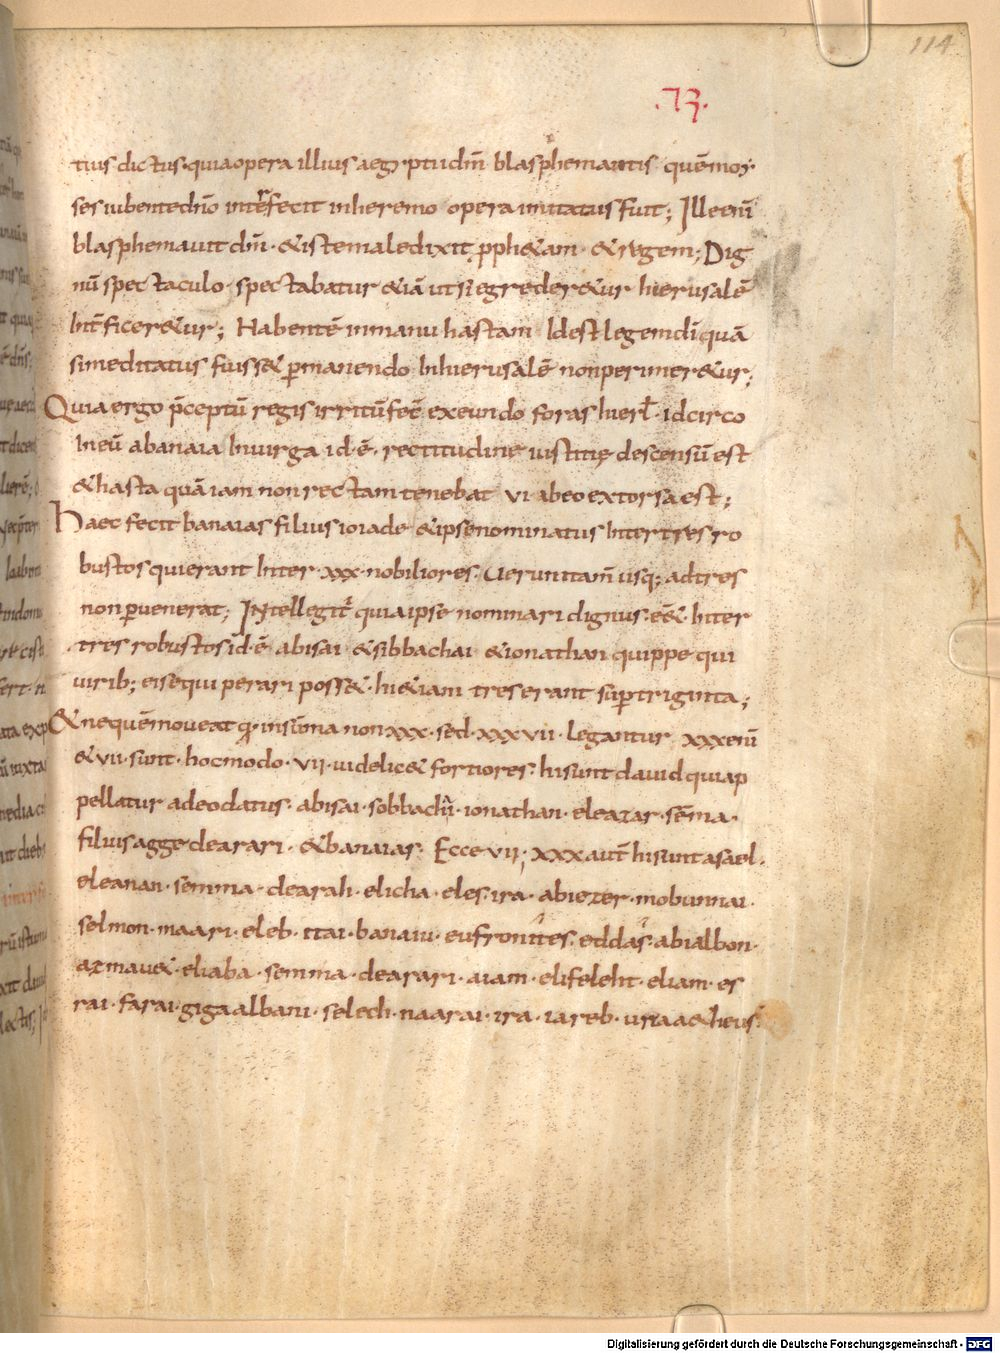 114
.73.
tius dictus. quia opera illius aegyptii dm̄ blasphemantis quē moy
ses iubente dn̄o interfecit in heremo opera imitatus fuit; Ille enī
blasphemauit dm̄. & iste maledixit pph&am. & regem; Dig
nū spectaculo. spectabatur & iā ut si egreder&ur hierusalē
Int̄ficer&ur; Habentē in manu hastam Id est legem dī quā
si meditatus fuiss& p̄manendo In hierusalē non perimer&ur;
Quia ergo p̄ceptū regis irritū fec̄ exeundo foras hierl̄. idcirco
In eū a banaia In uirga id ē. rectitudine iustitię descensū est
& hasta quā iam non rectam tenebat ui ab eo extorsa est;
Haec fecit banaias filius ioiade & ipse nominatus Inter tres ro
bustos qui erant Inter xxx. nobiliores. Uerunitam̄ usq; ad tres
non p̄uenerat; Intellegit̄ quia ipse nominari dignus. e&. Inter
tres robustos id. ē abisai & sibbachai & ionathan quippe qui
uirib; eis equiperari poss&. hi &iam tres erant sup̄ triginta;
& ne quē moueat qđ. in sūma non xxx. sed. xxxvii. legantur xxx enī
& vii. sunt. hoc modo. vii. uidelic& fortiores. hi sunt dauid qui ap
pellatur adeodatus. abisai. sobbachi. ionathan. eleazar. sēma.
filius agge de arari. & banaias. Ecce vii; xxx aut̄ hi sunt asael.
eleanan. semma. de arali. elicha. eles. ira. abiezer. mobunnai.
selmon. maari. eleb. itai. banaiu. eufronites. eddas. abialbon.
azmau&. eliaba. semma. de arari. aiam. elifeleht. eliam. es
rai. farai. giga albani. selech. naarai. ira. iareb. uria &heus.
Digitalisierung gefördert durch die Deutsche Forschungsgemeinschaft - DFG